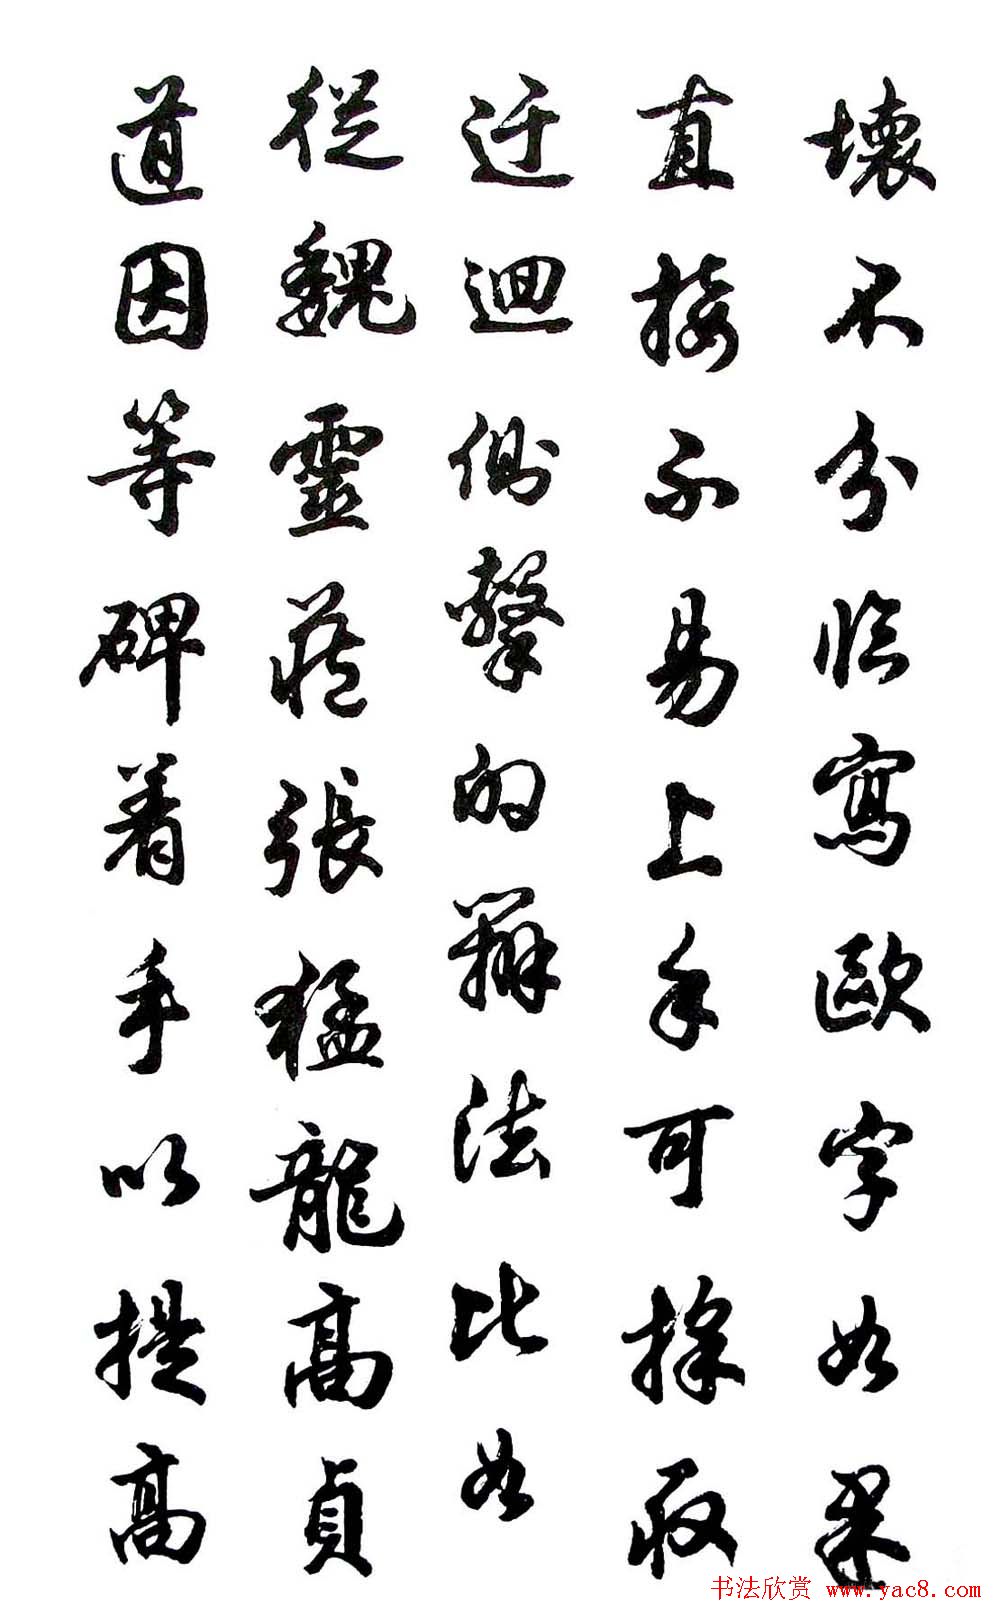 壞不分临寫歐字如果
直接不易上手可採取
迂迴側擊的辦法比如
從魏靈藏張猛龍高貞
道因等碑着手以提高
书法欣赏 www.yac8.com